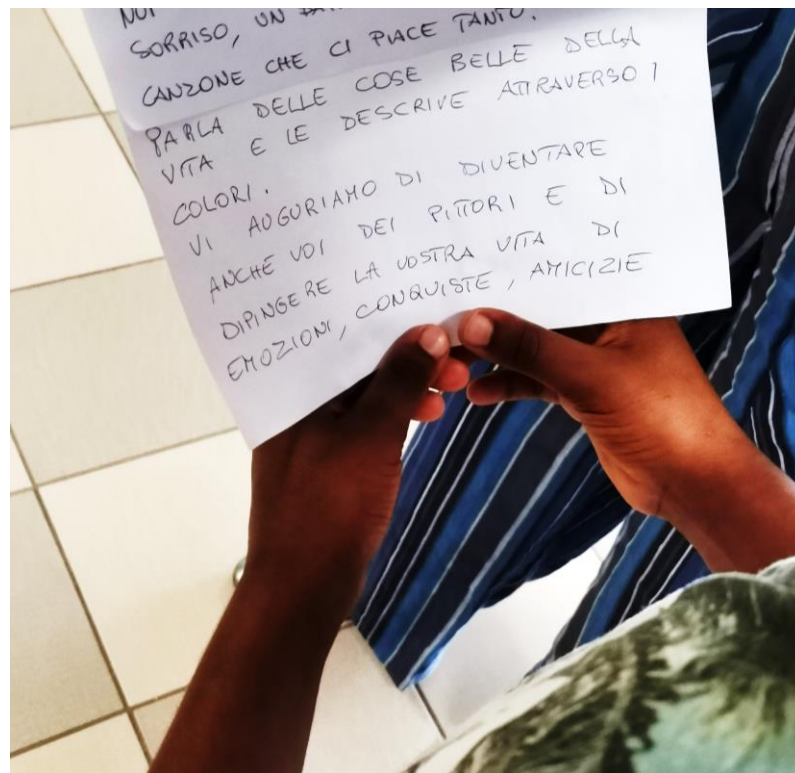 NOI
SORRISO, UN
CANZONE CHE CI PIACE TANTO.
PARLA DELLE COSE BELLE DELLA
VITA E LE DESCRIVE ATTRAVERSO I
COLORI.
VI AUGURIAMO DI DIVENTARE
ANCHE VOI DEI PITTORI E DI
DIPINGERE LA VOSTRA VITA DI
EMOZIONI, CONQUISTE, AMICIZIE